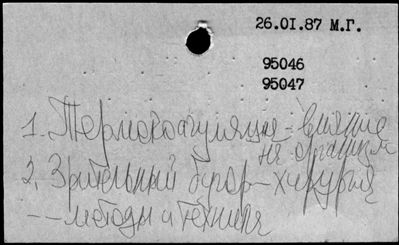 26.01.87 М.Г.
95046
95047
1. Термокоагуляция - влияние
на организм
2. Зрительный бугор - хирургия
-- методы и техника